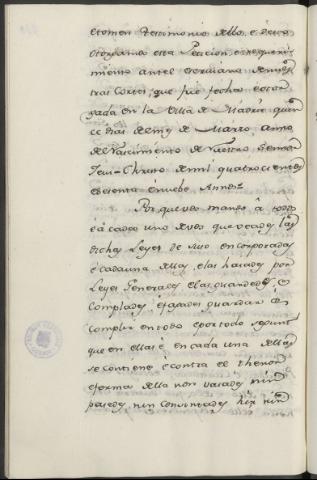 e tomen testimonio dello, e desta
otorgamos esta Peticion, e requeri-
miento antel escrivano de nues-
tras Cortes, que fue fecha e otor-
gada en la Villa de Madrid quin-
ce dias del mes de Marzo, anno
del Nascimiento de Nuestro Sennor
Jesu-Christo de mil quatrocientos
e sesenta e nuebe Annos
Por que vos mando á todos
e á cada uno de vos que veades las
dichas Leyes de suso encorporadas
e cada una dellas, e las hayades por
Leyes Generales, e las guardedes, e
complades, e fagades guardar é
complir en todo e por todo, segunt
que en ellas, é en cada una dellas
se contiene, e contra el thenor
e forma della non vayades, nin
pasedes, nin consintades hir nin